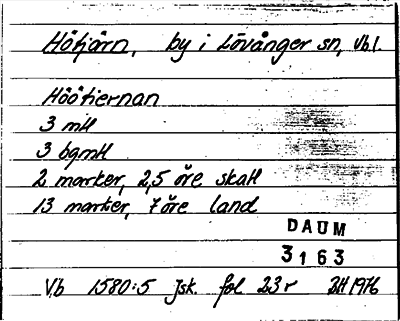 Hötjärn, by i Lövånger sn, Vbl.
Höötiernan
3 mtl
3 bgmtl
2 marker, 2,5 öre skatt
13 marker, 7 öre land
DAUM
3163
Vb 1580:5 Jsk. fol 23r BH 1976